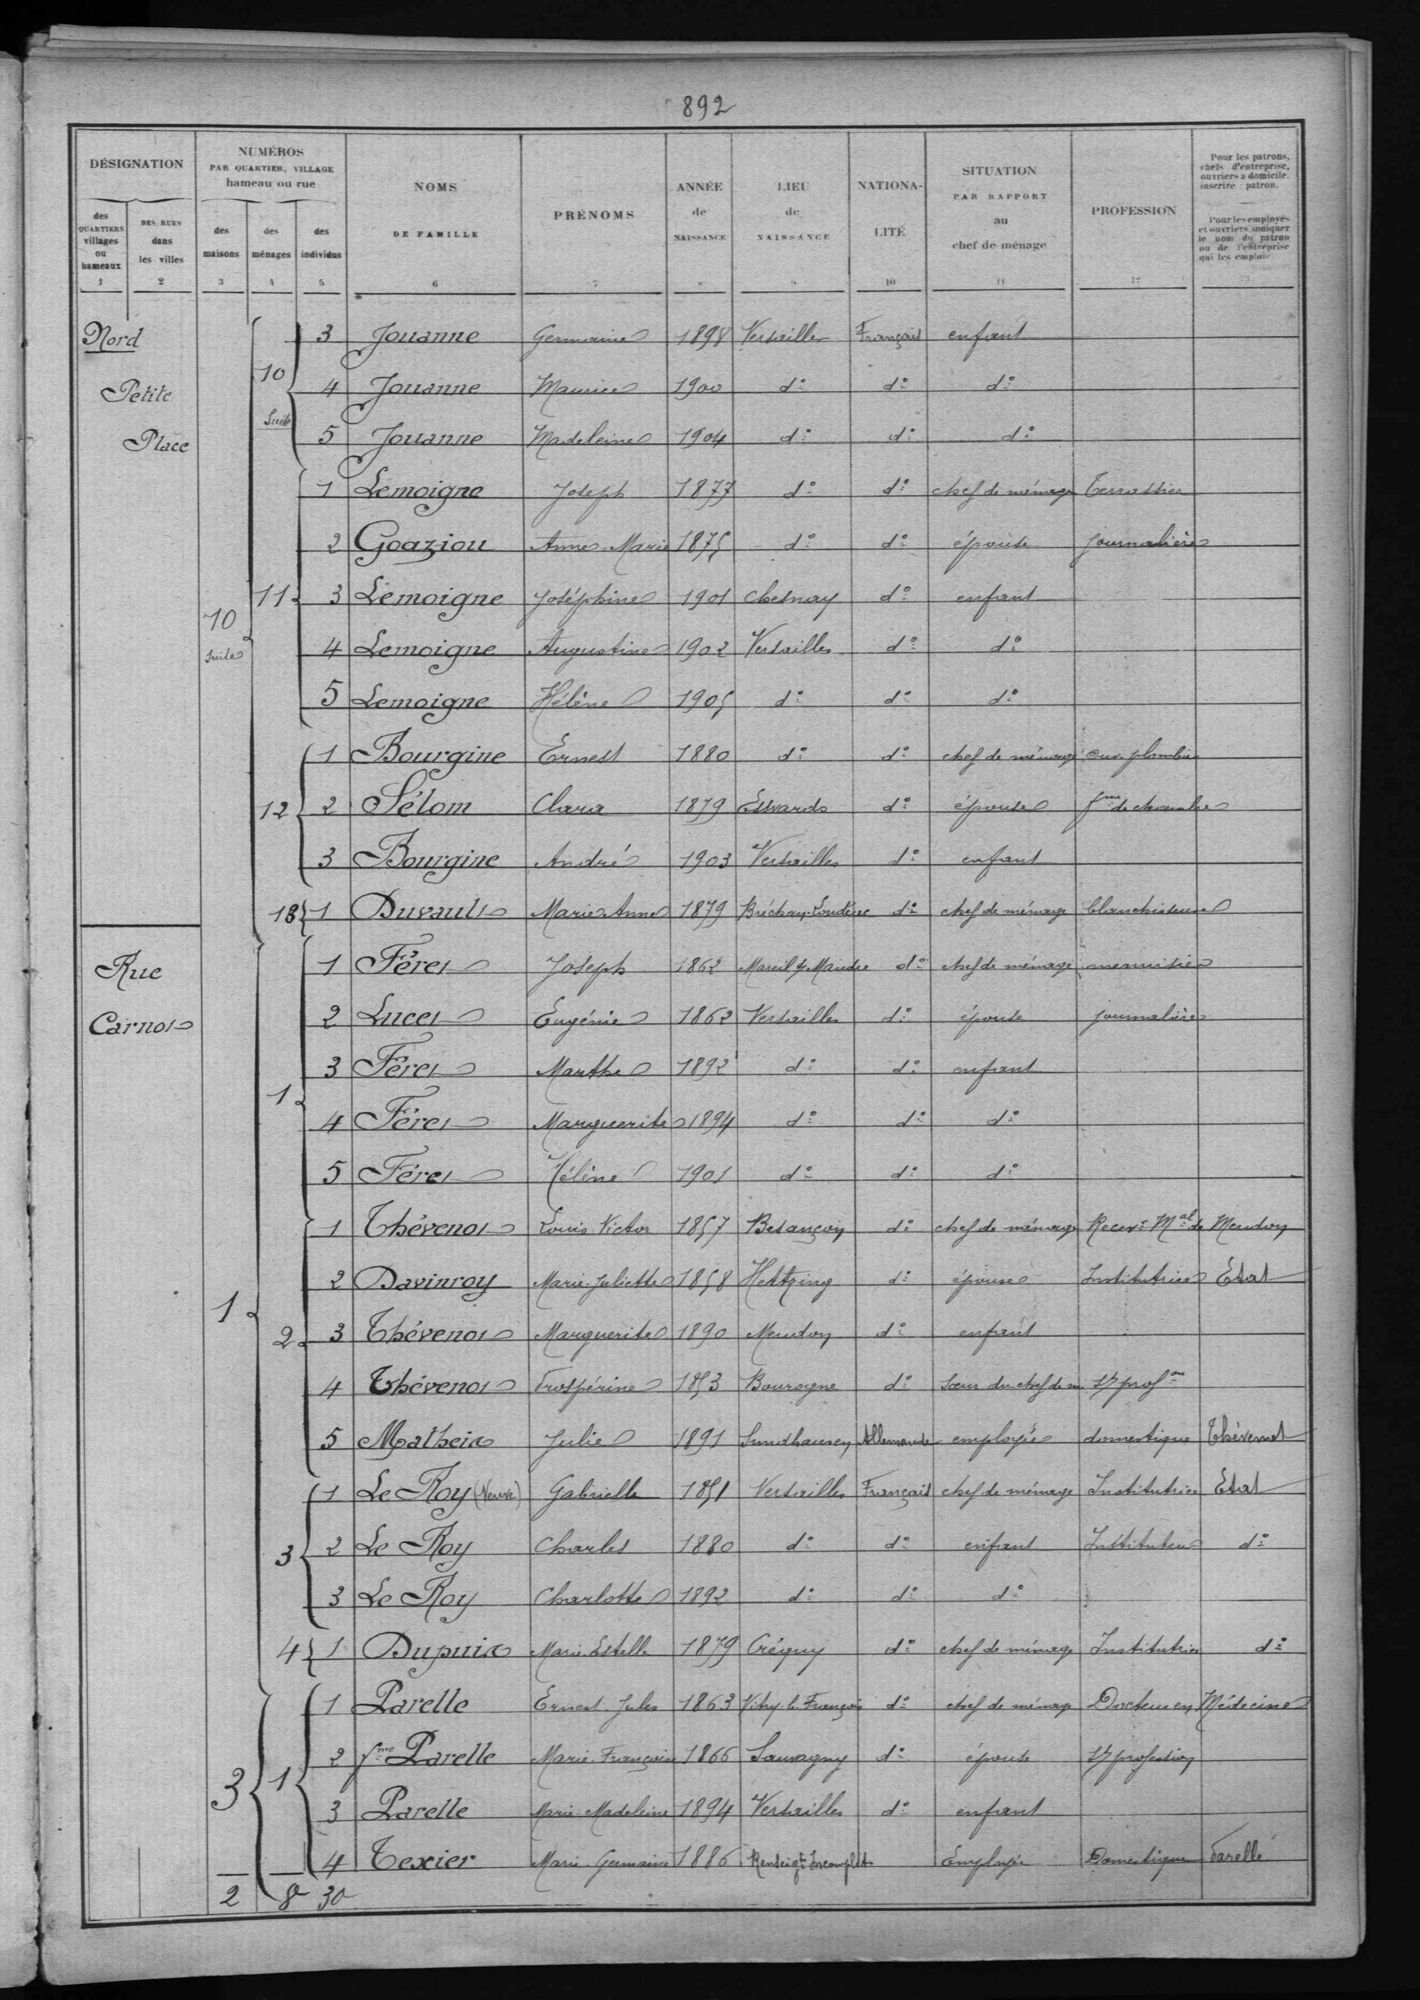 892
DÉSIGNATION
des QUARTIERS villages ou hameaux
1
DES RUES dans les villes
2
NUMÉROS
PAR QUARTIER, VILLAGE
hameau ou rue
des maisons
3
des ménages
4
des individus
5
NOMS
DE FAMILLE
6
PRÉNOMS
7
ANNÉE
de
NAISSANCE
8
LIEU
de
NAISSANCE
9
NATIONA-
LITÉ
10
SITUATION
PAR RAPPORT
au
chef de ménage
11
PROFESSION
12
Pour les patrons,
chefs d'entreprise,
ouvriers à domicile,
inscrire : patron.
Pour les employés
et ouvriers, indiquer
le nom du patron
ou de l'entreprise
qui les emploie.
13
Nord
Petite
Place
10
Suite
10
Suite
3 Jouanne Germaine 1898 Versailles Français enfant
4 Jouanne Maurice 1900 do do do
5 Jouanne Madeleine 1904 do do do
11
1 Lemoigne Joseph 1877 do do chef de ménage Terrassier
2 Goaziou Anne-Marie 1875 do do épouse journalière
3 Lemoigne Joséphine 1901 Chesnay do enfant
4 Lemoigne Augustine 1902 Versailles do do
5 Lemoigne Hélène 1905 do do do
12
1 Bourgine Ernest 1880 do do chef de ménage ouv. plombier
2 Sélom Clara 1879 Essvards do épouse fme de chambre
3 Bourgine André 1903 Versailles do enfant
13
1 Duvault Marie Anne 1879 do chef de ménage blanchisseuse
Rue
Carnot
1
1
1 Féret Joseph 1862 Mareil s/ Mandre do chef de ménage menuisier
2 Lucet Eugénie 1862 Versailles do épouse journalière
3 Féret Marthe 1892 do do enfant
4 Féret Marguerite 1894 do do do
5 Féret Hélène 1901 do do do
2
1 Thévenot Louis Victor 1857 Besançon do chef de ménage Recevr Mal de Meudon
2 Davinroy Marie-Juliette 1858 do épouse Institutrice Etat
3 Thévenot Marguerite 1890 Meudon do enfant
4 Thévenot Prospérine 1853 Bourogne do Sœur du chef de m. s/ profon
5 Matheix Julie 1891 Sundhausen Allemande employée domestique Thévenot
3
1 Le Roy (Veuve) Gabrielle 1851 Versailles Français chef de ménage Institutrice Etat
2 Le Roy Charles 1880 do do enfant Instituteur do
3 Le Roy Charlotte 1892 do do do
4
1 Dupuix Marie Estelle 1879 Créquy do chef de ménage Institutrice do
3
1
1 Parelle Ernest-Jules 1863 Vitry-le-François do chef de ménage Docteur en Médecine
2 fme Parelle Marie-Françoise 1866 Sauvagny do épouse s/ profession
3 Parelle Marie-Madeleine 1894 Versailles do enfant
4 Texier Marie Germaine 1886 Renseigt Incomplet Employée Domestique Parelle
2 8 30